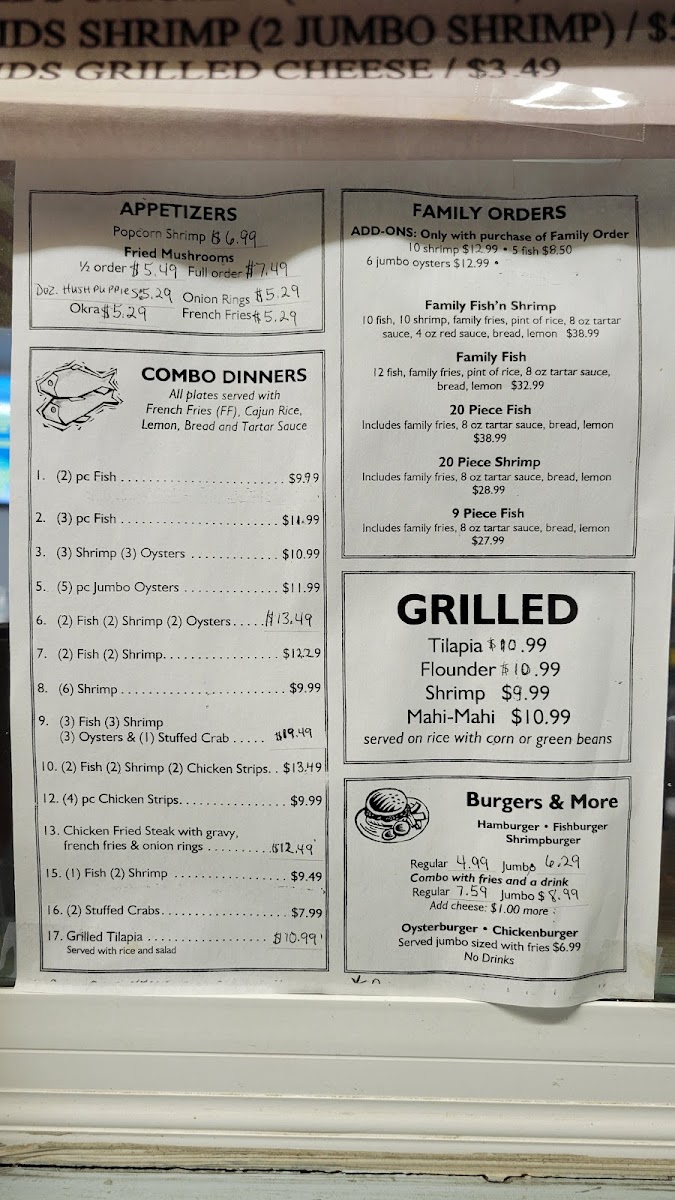 IDS SHRIMP (2 JUMBO SHRIMP) / $
IDS GRILLED CHEESE / $3.49
APPETIZERS
Popcorn Shrimp $6.99
Fried Mushrooms
½ order $5.49 Full order $7.49
Doz. Hush Puppies $5.29 Onion Rings $5.29
Okra $5.29 French Fries $5.29
COMBO DINNERS
All plates served with
French Fries (FF), Cajun Rice,
Lemon, Bread and Tartar Sauce
1. (2) pc Fish . . . . . . . . . . . . . . . . . . . . . . . $9.99
2. (3) pc Fish . . . . . . . . . . . . . . . . . . . . . . $11.99
3. (3) Shrimp (3) Oysters . . . . . . . . . . . . $10.99
5. (5) pc Jumbo Oysters . . . . . . . . . . . . . $11.99
6. (2) Fish (2) Shrimp (2) Oysters. . . . . $13.49
7. (2) Fish (2) Shrimp. . . . . . . . . . . . . . . . $12.29
8. (6) Shrimp . . . . . . . . . . . . . . . . . . . . . . . $9.99
9. (3) Fish (3) Shrimp
(3) Oysters & (1) Stuffed Crab . . . . . $19.49
10. (2) Fish (2) Shrimp (2) Chicken Strips. . $13.49
12. (4) pc Chicken Strips. . . . . . . . . . . . . . . $9.99
13. Chicken Fried Steak with gravy,
french fries & onion rings . . . . . . . . . $12.49
15. (1) Fish (2) Shrimp . . . . . . . . . . . . . . . . $9.49
16. (2) Stuffed Crabs. . . . . . . . . . . . . . . . . . $7.99
17. Grilled Tilapia . . . . . . . . . . . . . . . . . . $10.99
Served with rice and salad
FAMILY ORDERS
ADD-ONS: Only with purchase of Family Order
10 shrimp $12.99 • 5 fish $8.50
6 jumbo oysters $12.99 •
Family Fish'n Shrimp
10 fish, 10 shrimp, family fries, pint of rice, 8 oz tartar
sauce, 4 oz red sauce, bread, lemon $38.99
Family Fish
12 fish, family fries, pint of rice, 8 oz tartar sauce,
bread, lemon $32.99
20 Piece Fish
Includes family fries, 8 oz tartar sauce, bread, lemon
$38.99
20 Piece Shrimp
Includes family fries, 8 oz tartar sauce, bread, lemon
$28.99
9 Piece Fish
Includes family fries, 8 oz tartar sauce, bread, lemon
$27.99
GRILLED
Tilapia $10.99
Flounder $10.99
Shrimp $9.99
Mahi-Mahi $10.99
served on rice with corn or green beans
Burgers & More
Hamburger • Fishburger
Shrimpburger
Regular 4.99 Jumbo 6.29
Combo with fries and a drink
Regular 7.59 Jumbo $8.99
Add cheese: $1.00 more
Oysterburger • Chickenburger
Served jumbo sized with fries $6.99
No Drinks